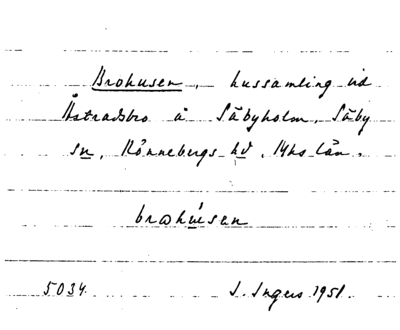 Brohusen, hussamling vid
Åstradsbro å Säbyholm, Säby
sn, Rönnebergs hd, Mhs län.
brωhu̍sɘn
5034. I. Ingers 1951.